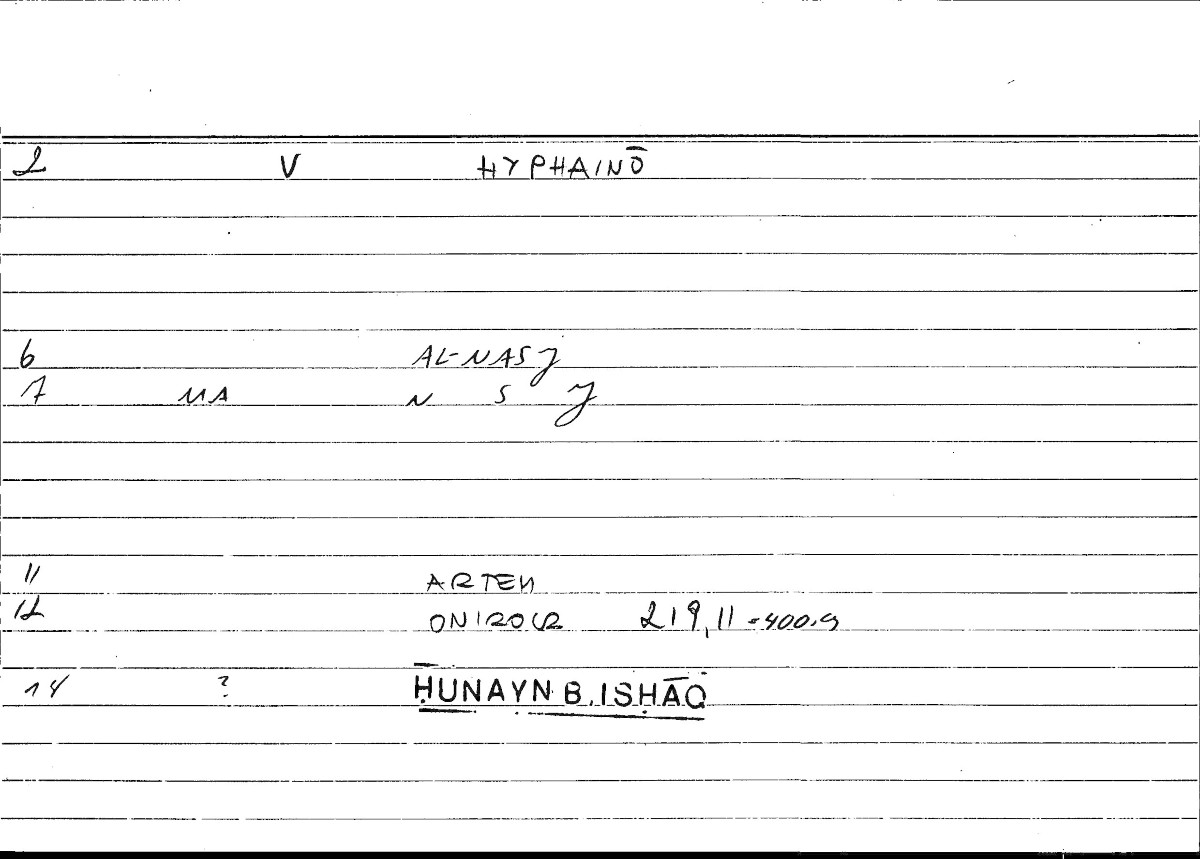 2 V HYPHAINŌ
6 AL-NASJ
7 MA N S J
11 ARTEM
12 ONIROCR 219,11 = 400.9
14 ? ḤUNAYN B. ISḤĀQ